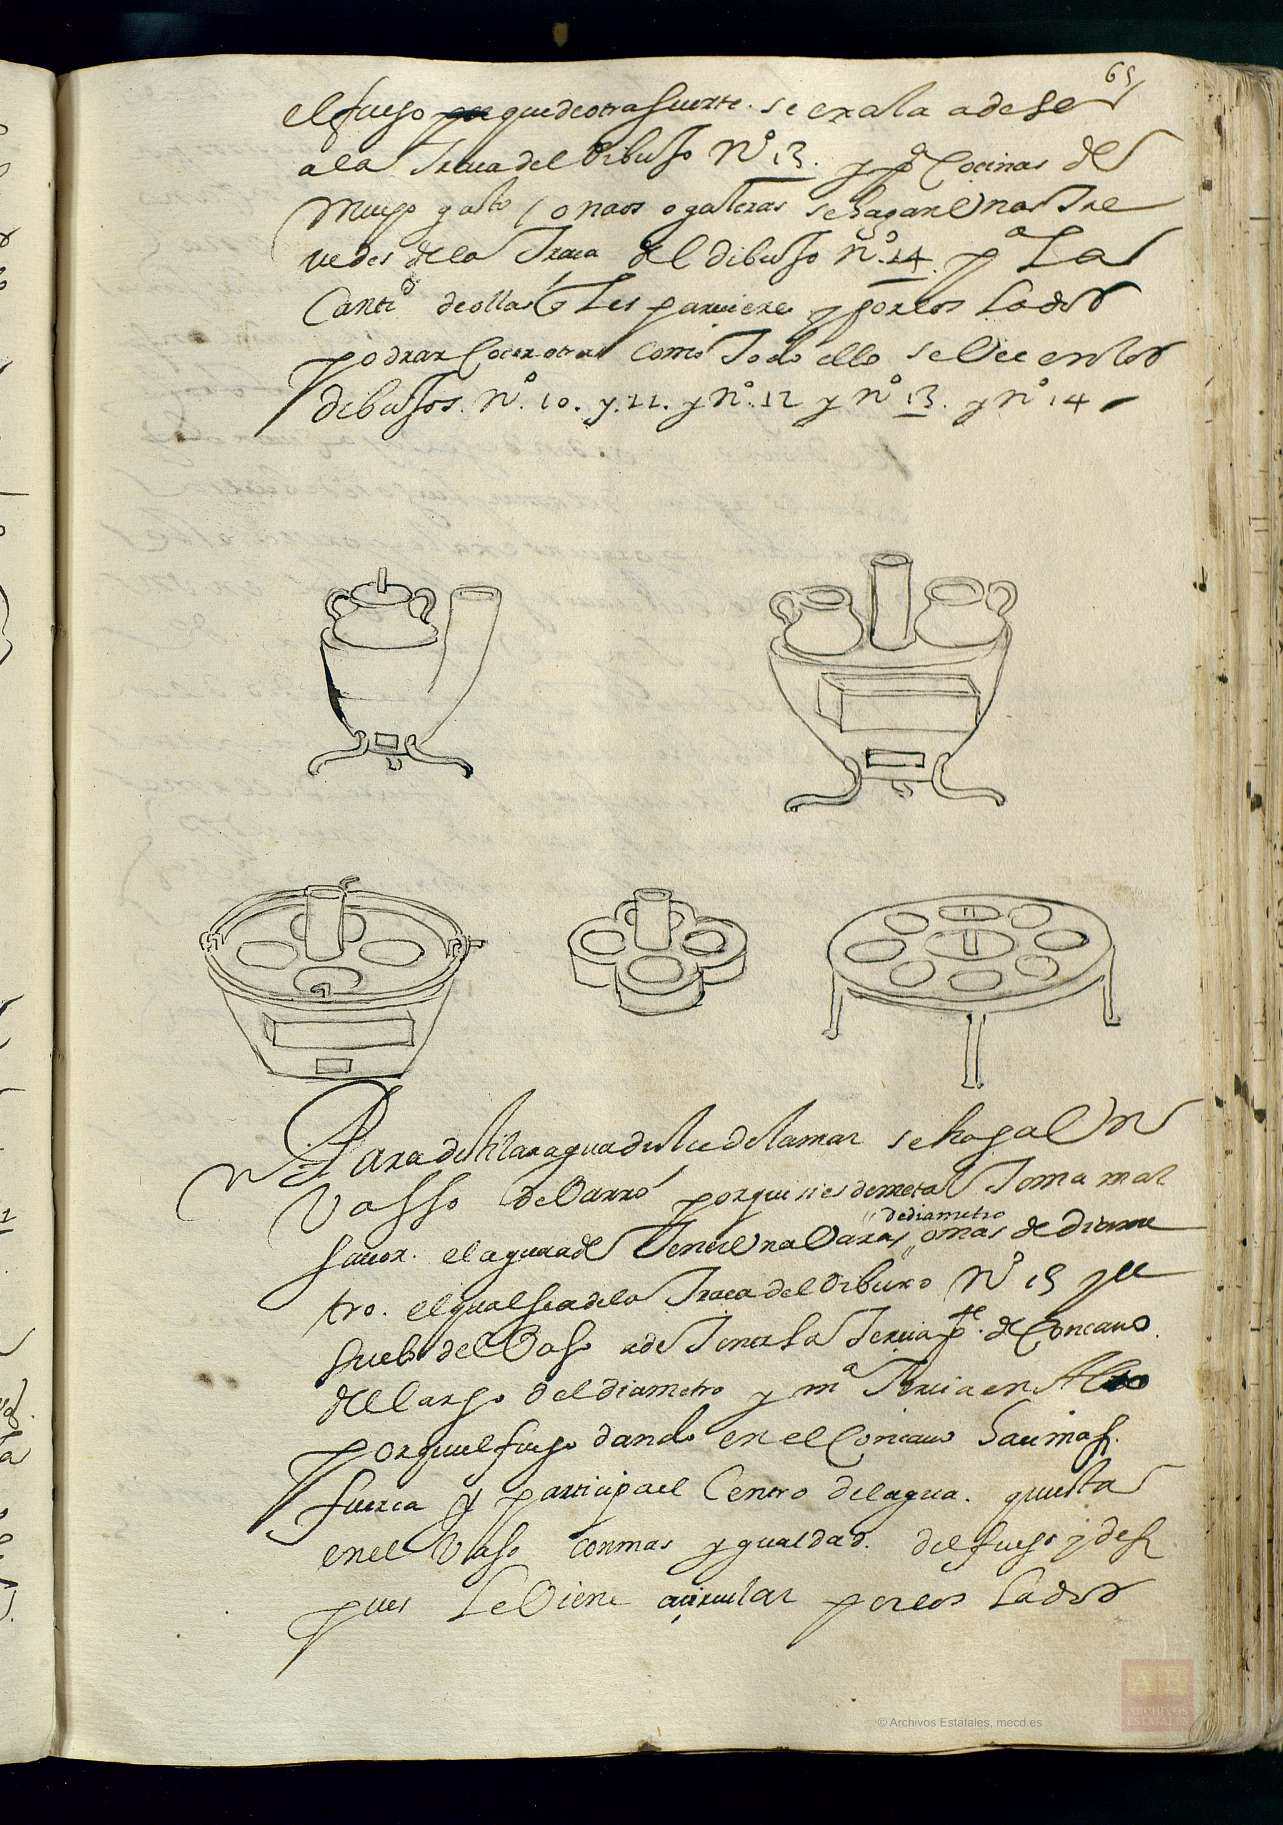 65
el fuego que de otra suerte. se exala a de se
a la Traca del Dibusso Nº 13. y pª Cocinas de
Mucho gasto, o naos o galeras se hagan Unas Tre
vedes de la Traca del dibusso nº 14. pª La
Cantid de ollas q Les pareciere y por los Lados
podran Cocer otras como Todo ello se Vee en los
dibussos. Nº. 10. y. 11. y nº. 12 y nº 13. y nº 14
Para destilar agua dulce de la mar se haga Un
Vasso de Barro porque si es de metal Toma mal
savor. el agua a de Tener Una Vara, o mas de diame
de diametro
tro. el qual sea de la Traca del Dibuxo Nº 15 y el
suelo del Vaso a de Tener La Tercia pte. de Concavo
del Largo del diametro y mª Tercia en Alto
porque el fuego dando en el Concavo Haci mas
fuerca y participa el Centro del agua. questa
en el Vaso con mas ygualdad. del fuego y des
pues Le Viene a circular por los Lados
© Archivos Estatales, mecd.es
AE
ARCHIVOS
ESTATALES